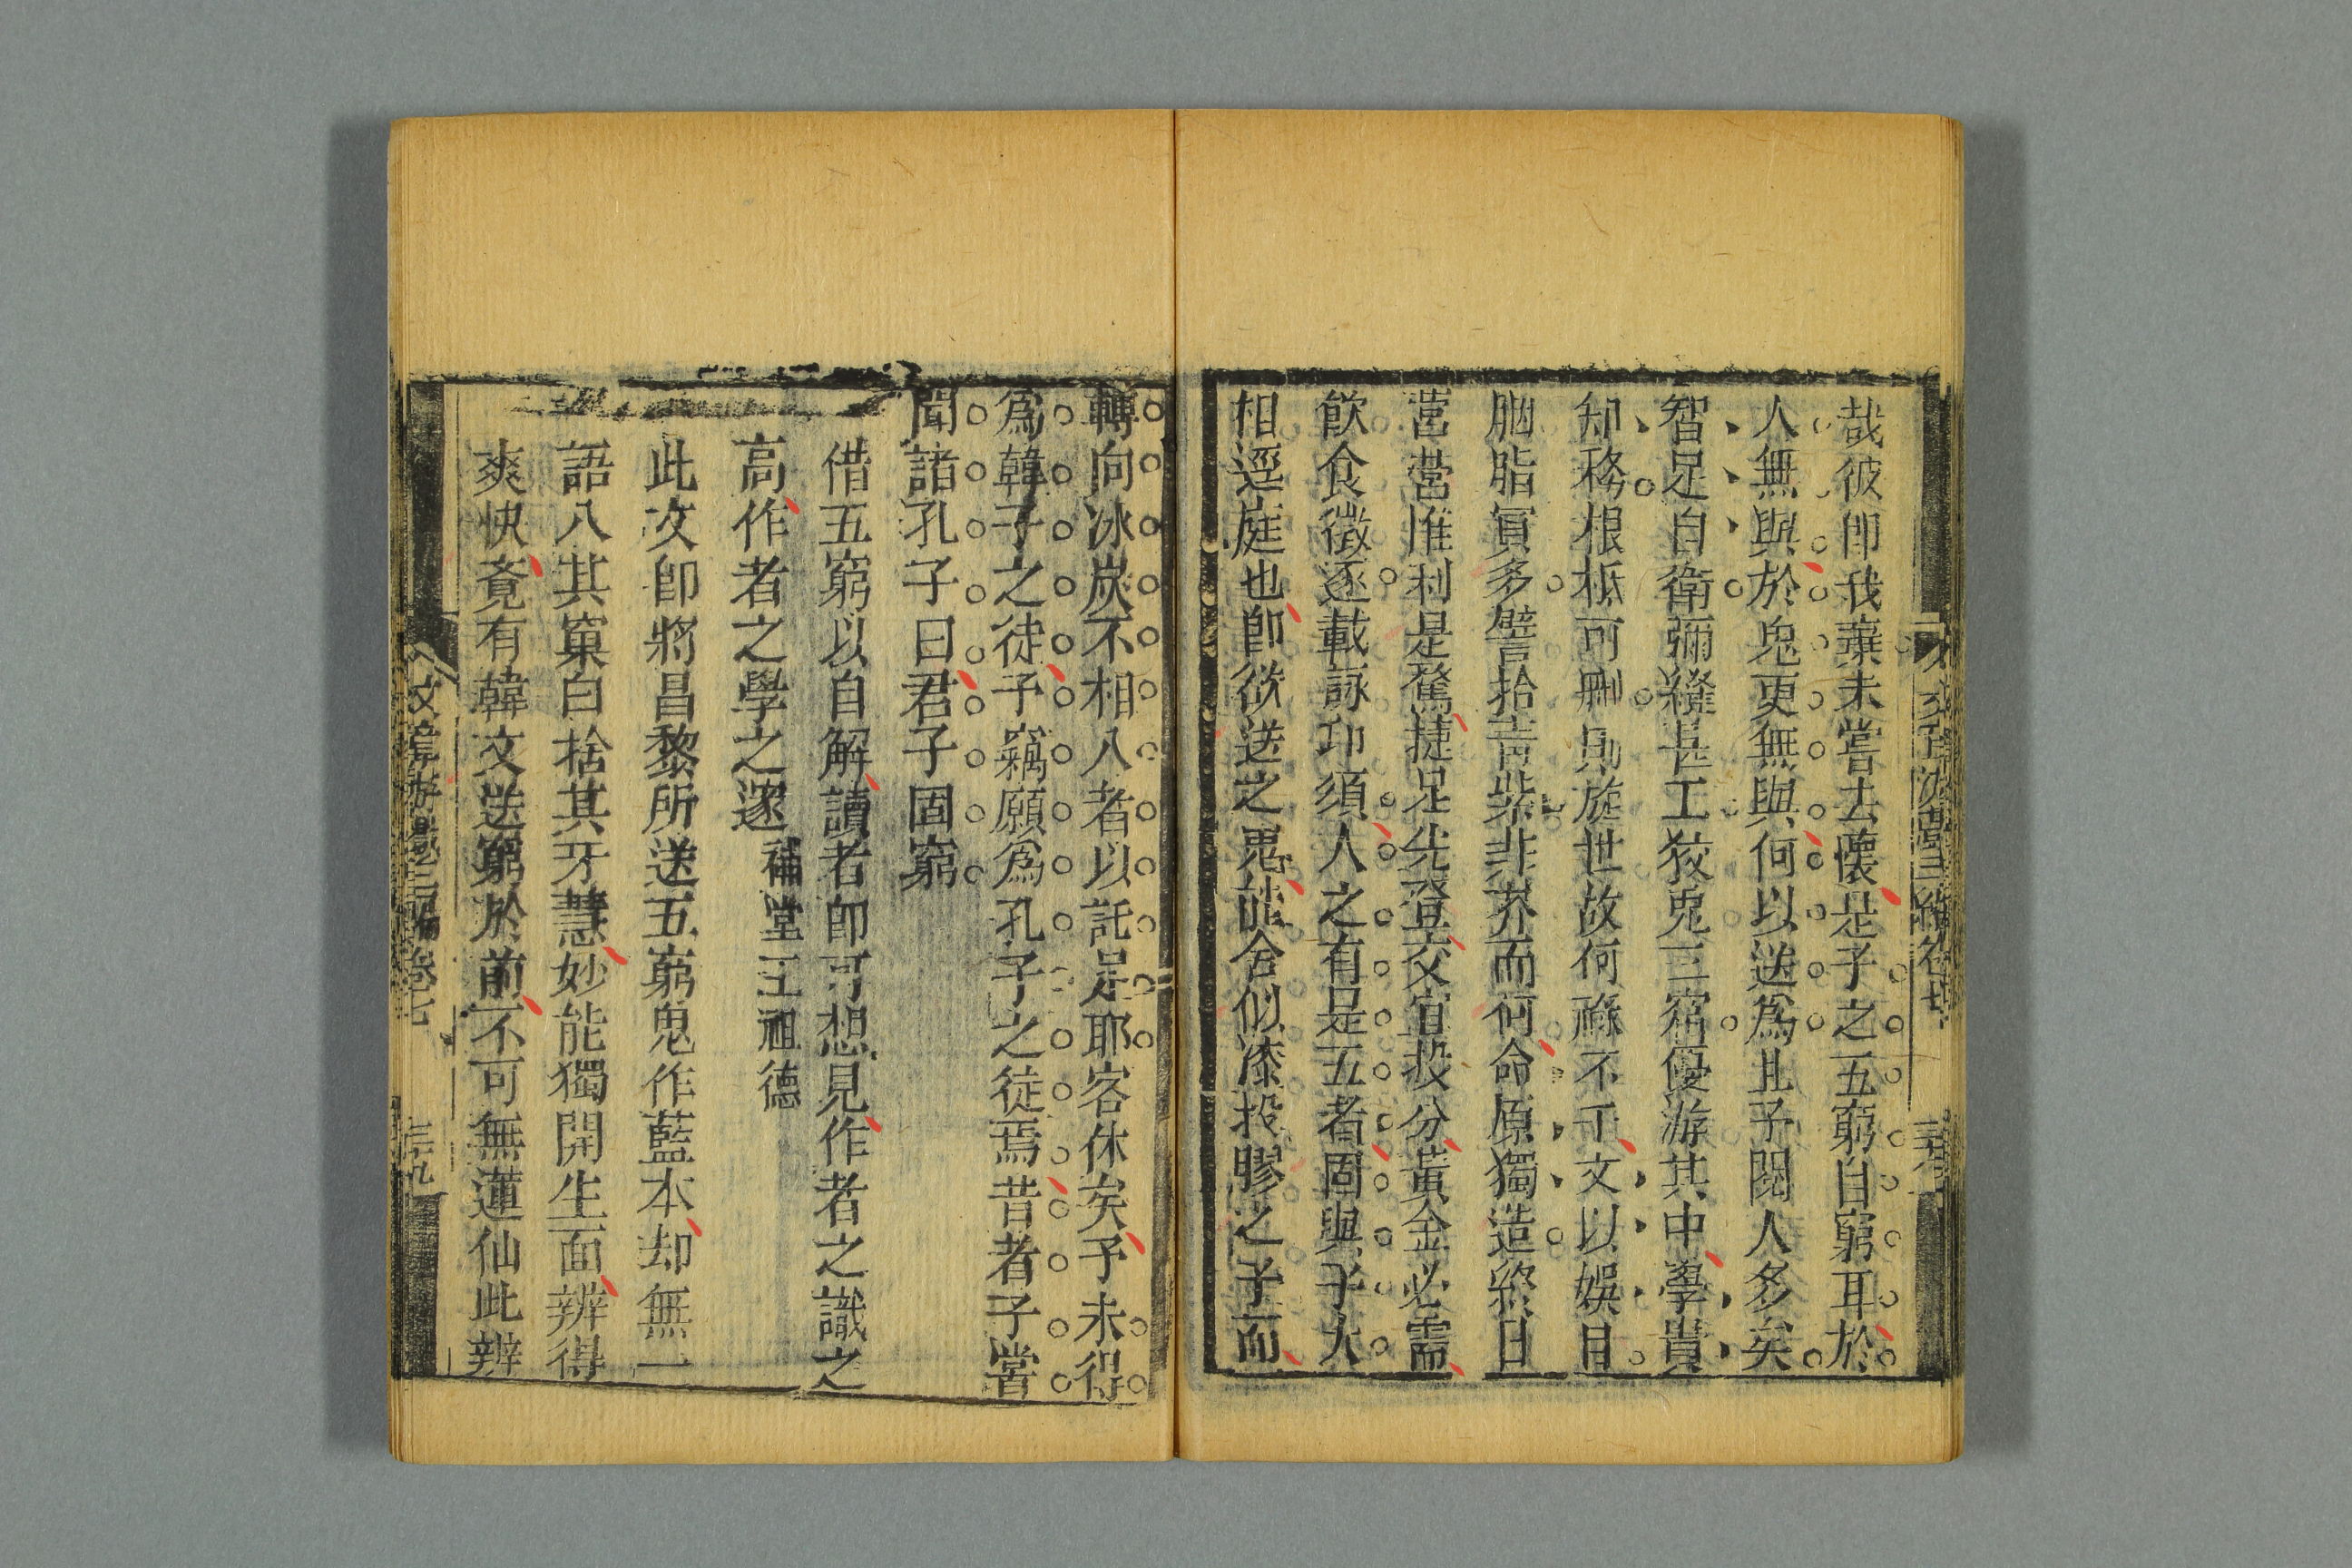 哉彼即我棄未嘗去懷是子之五窮自窮耳於
人無與於鬼更無與何以送為且予閱人多矣
智足自衛彌縫甚工狡兔三窟優游其中學貴
知務根柢可刪則旋世故何祿不干文以娛目
胭脂寘多譬拾青紫非芥而何命原獨造終日
營營惟利是騖捷足先登交宜投分黃金必需
飲食徵逐載詠卬須人之有是五者固與子大
相逕庭也即欲送之鬼能合似漆投膠之予而
轉向冰炭不相入者以託足耶客休矣予未得
為韓子之徒予竊願為孔子之徒焉昔者予嘗
聞諸孔子曰君子固窮
借五窮以自解讀者即可想見作者之識之
高作者之學之邃 補堂王祖德
此文即將昌黎所送五窮鬼作藍本却無一
語入其窠臼拾其牙慧妙能獨開生面辨得
爽快竟有韓文送窮於前不可無蓮仙此辨
文章游戲三編卷七
三十九